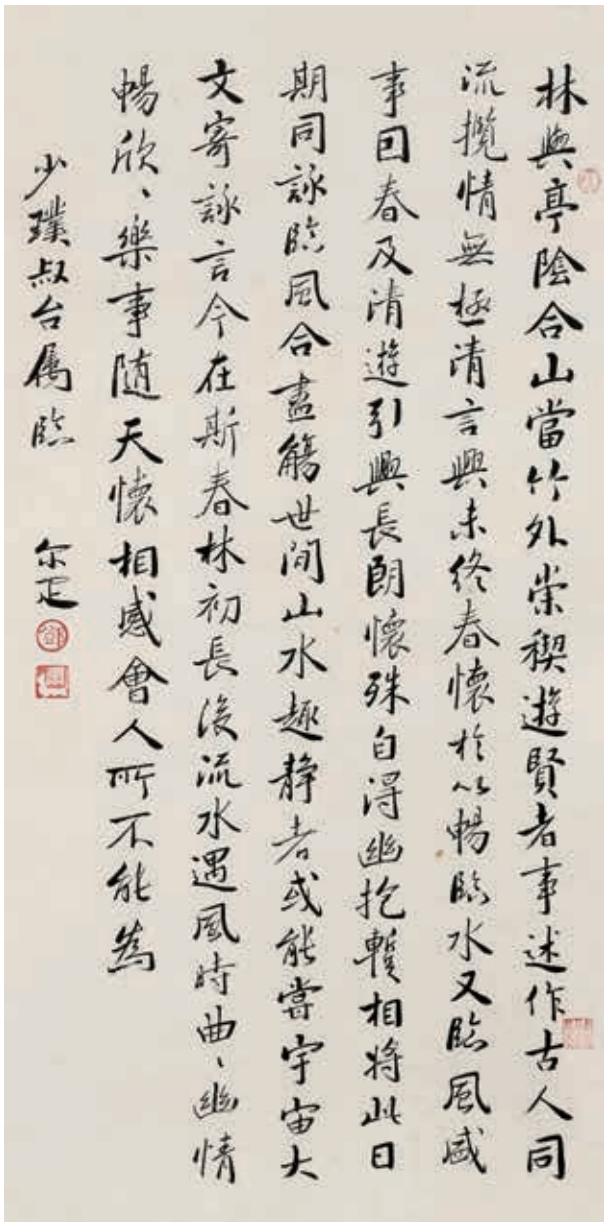 林與亭陰合山當竹外崇稧遊賢者事述作古人同
流攬情無極清言興未終春懷於以暢臨水又臨風感
事回春及清遊引興長朗懷殊自得幽抱暫相將此日
期同詠臨風合盡觴世間山水趣静者或能嘗宇宙大
文寄詠言今在斯春林初長後流水遇風時曲〻幽情
暢欣〻樂事随天懷相感會人所不能為
少璞叔台属臨 尔疋
鄧